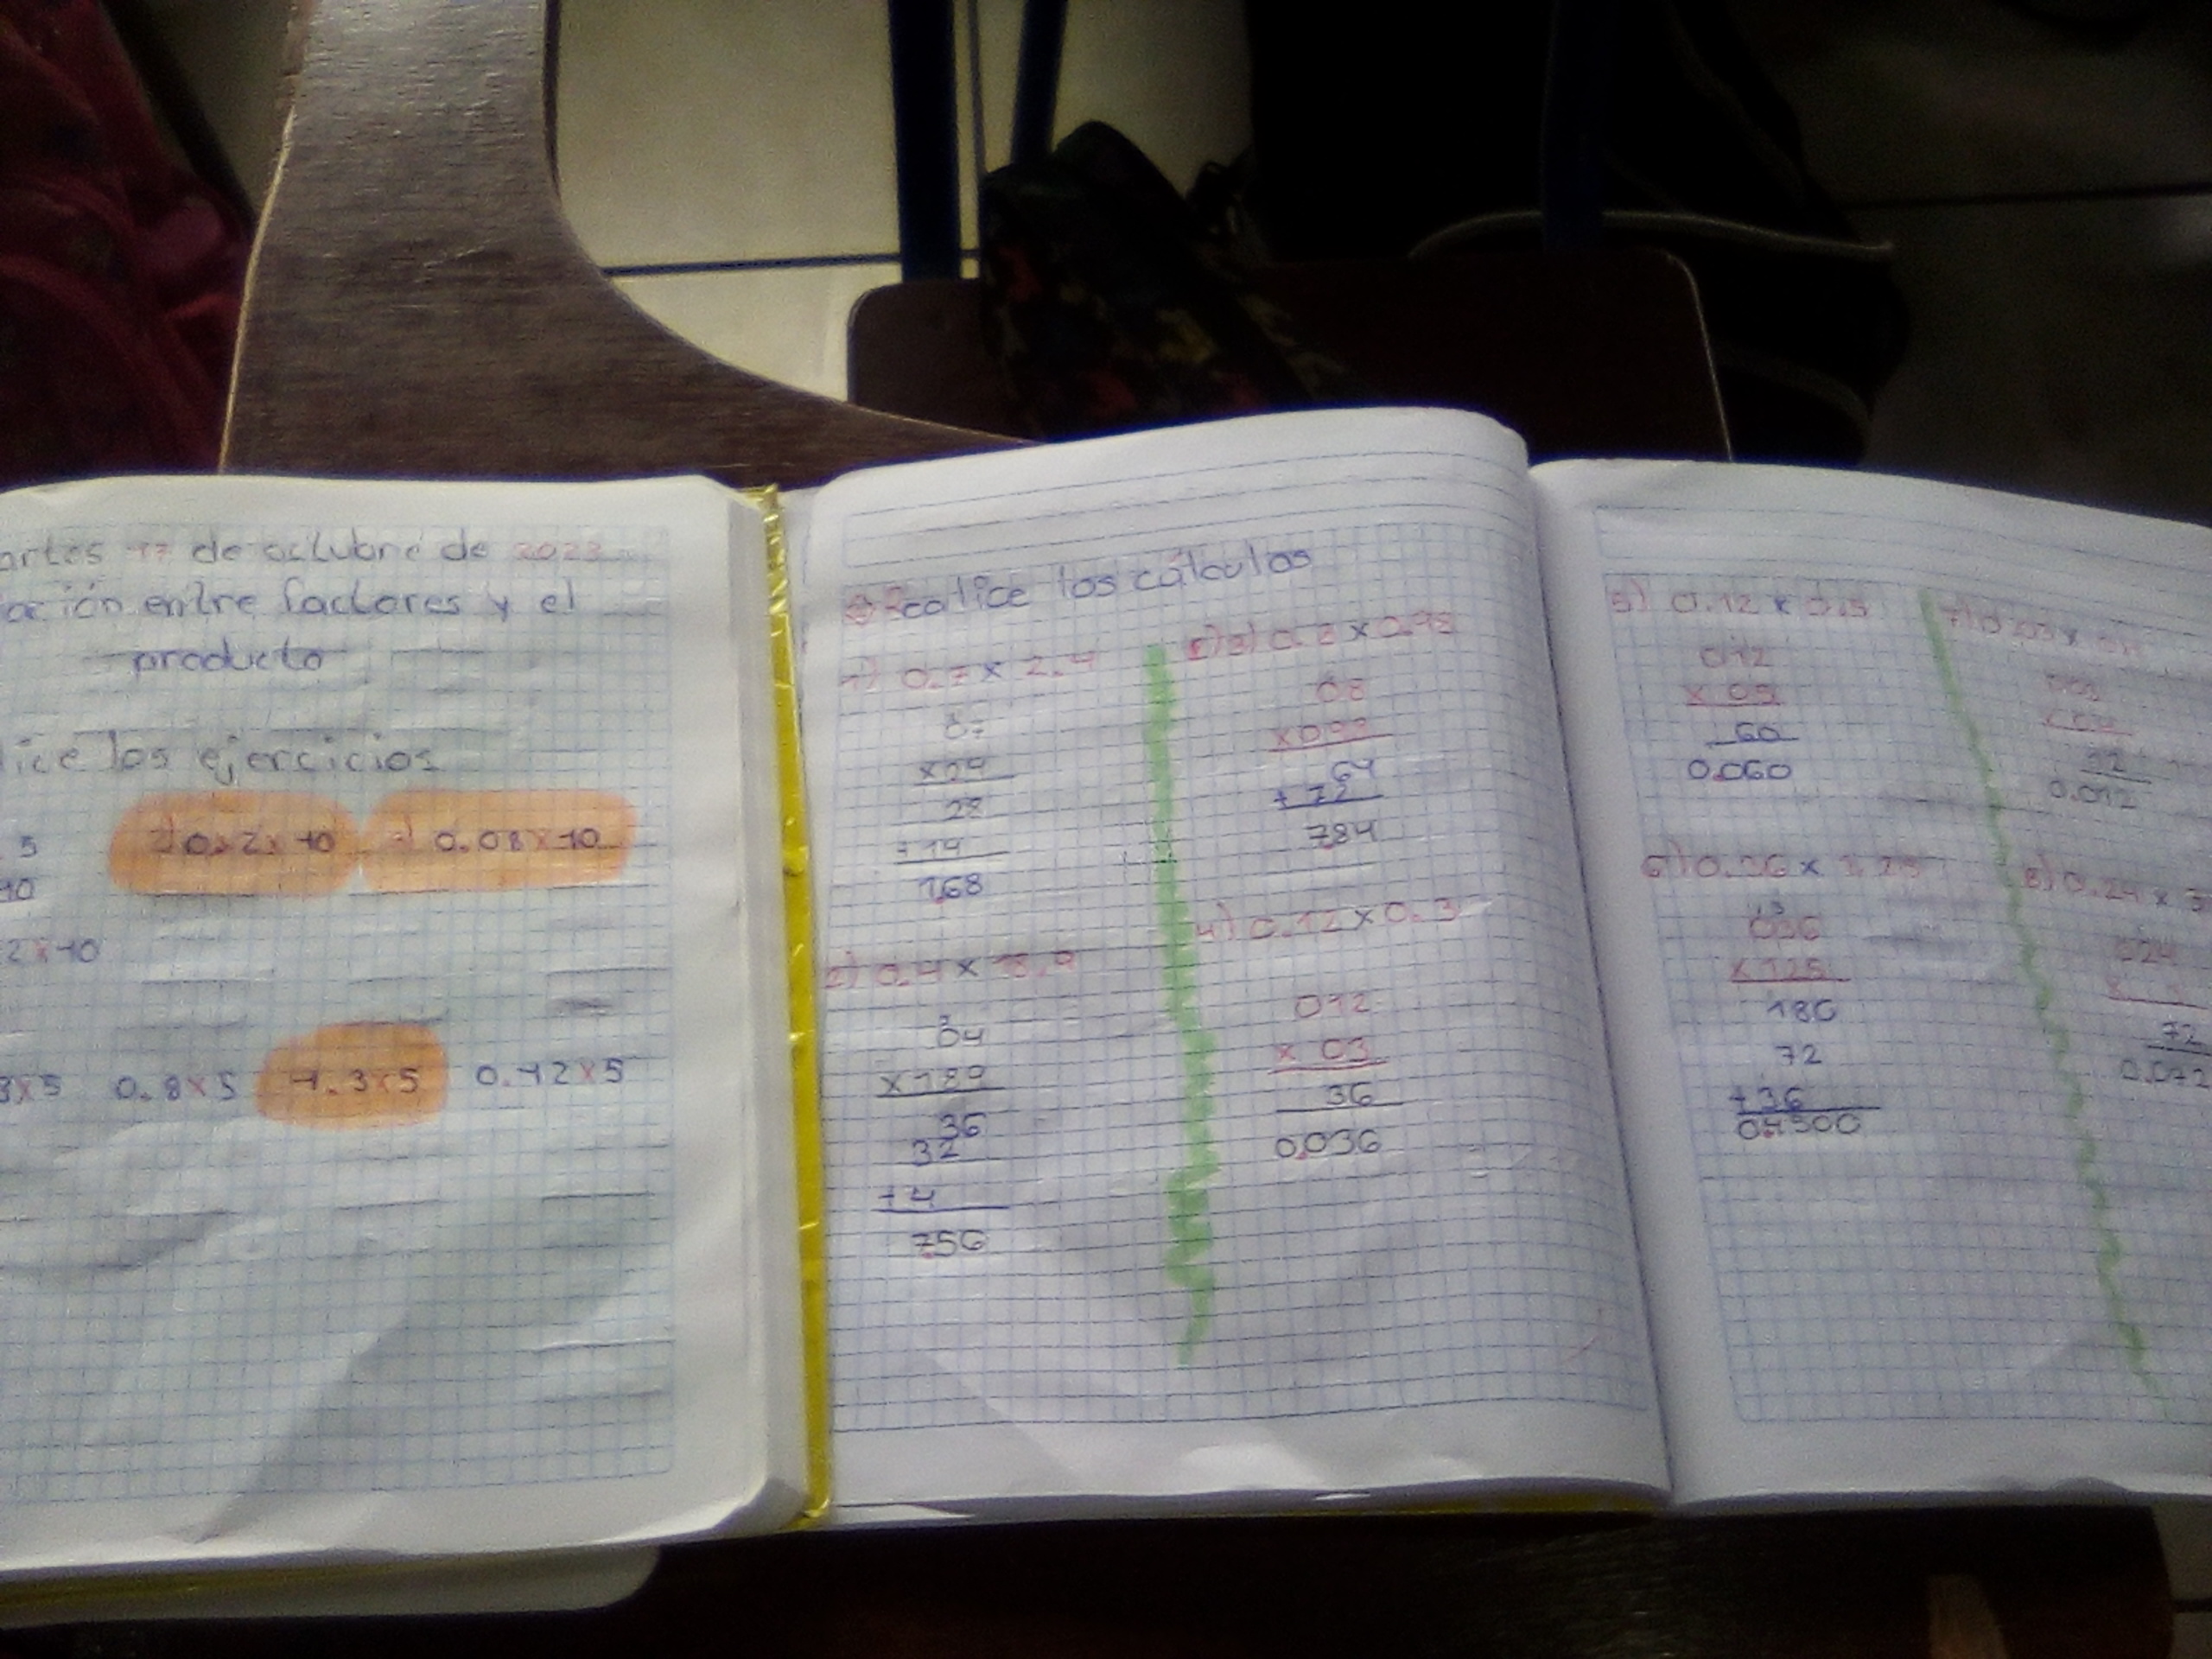 artes 17 de octubre de 2023
ación entre factores y el
producto
lice los ejercicios
5
2) 0.2x 10
0.08x10
10
2x10
3x5
0.8x5
1.3x5
0.42x5
Realice los cálculos
1) 0.7x 2.4
07
x24
28
+14
1.68
2) 0.4 x 18.9
04
x189
36
32
+4
7.56
3) 0.8 x 0.98
08
x098
64
+ 72
784
4) 0.12x0.3
012
x 03
36
0.036
5) 0.12 x 0.5
012
x 05
60
0.060
6) 0.36 x 1.25
036
x125
180
72
+36
0.4500
12
0.012
8) 0.24 x 3
024
x
72
0.072